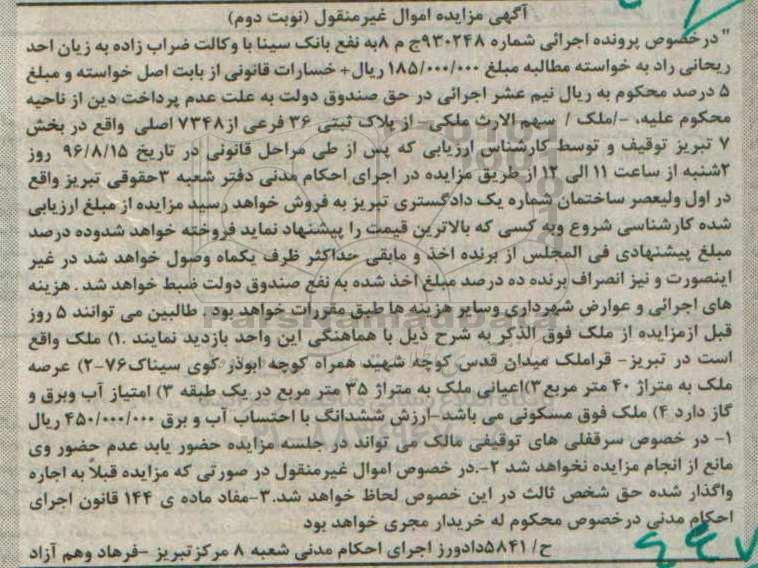 آگهی مزایده اموال غیرمنقول (نوبت دوم)
" درخصوص پرونده اجرائی شماره ۹۳۰۲۴۸ج م ۸به نفع بانک سینا با وکالت ضراب زاده به زیان احد
ریحانی راد به خواسته مطالبه مبلغ ۱۸۵/۰۰۰/۰۰۰ ریال+ خسارات قانونی از بابت اصل خواسته و مبلغ
۵ درصد محکوم به ریال نیم عشر اجرائی در حق صندوق دولت به علت عدم پرداخت دین از ناحیه
محکوم علیه، -/ملک / سهم الارث ملکی- از پلاک ثبتی ۳۶ فرعی از۷۳۴۸ اصلی واقع در بخش
۷ تبریز توقیف و توسط کارشناس ارزیابی که پس از طی مراحل قانونی در تاریخ ۹۶/۸/۱۵ روز
۲شنبه از ساعت ۱۱ الی ۱۲ از طریق مزایده در اجرای احکام مدنی دفتر شعبه ۳حقوقی تبریز واقع
در اول ولیعصر ساختمان شماره یک دادگستری تبریز به فروش خواهد رسید مزایده از مبلغ ارزیابی
شده کارشناسی شروع وبه کسی که بالاترین قیمت را پیشنهاد نماید فروخته خواهد شدوده درصد
مبلغ پیشنهادی فی المجلس از برنده اخذ و مابقی حداکثر ظرف یکماه وصول خواهد شد در غیر
اینصورت و نیز انصراف برنده ده درصد مبلغ اخذ شده به نفع صندوق دولت ضبط خواهد شد . هزینه
های اجرائی و عوارض شهرداری وسایر هزینه ها طبق مقررات خواهد بود . طالبین می توانند ۵ روز
قبل ازمزایده از ملک فوق الذکر به شرح ذیل با هماهنگی این واحد بازدید نمایند .۱) ملک واقع
است در تبریز- قراملک میدان قدس کوچه شهید همراه کوچه ابوذر کوی سیناک۷۶-۲) عرصه
ملک به متراژ ۴۰ متر مربع ۳)اعیانی ملک به متراژ ۳۵ متر مربع در یک طبقه ۳) امتیاز آب وبرق و
گاز دارد ۴) ملک فوق مسکونی می باشد-ارزش ششدانگ با احتساب آب و برق ۴۵۰/۰۰۰/۰۰۰ ریال
۱- در خصوص سرقفلی های توقیفی مالک می تواند در جلسه مزایده حضور یابد عدم حضور وی
مانع از انجام مزایده نخواهد شد ۲-.در خصوص اموال غیرمنقول در صورتی که مزایده قبلاً به اجاره
واگذار شده حق شخص ثالث در این خصوص لحاظ خواهد شد.۳-مفاد ماده ی ۱۴۴ قانون اجرای
احکام مدنی درخصوص محکوم له خریدار مجری خواهد بود
ح/ ۵۸۴۱دادورز اجرای احکام مدنی شعبه ۸ مرکزتبریز -فرهاد وهم آزاد